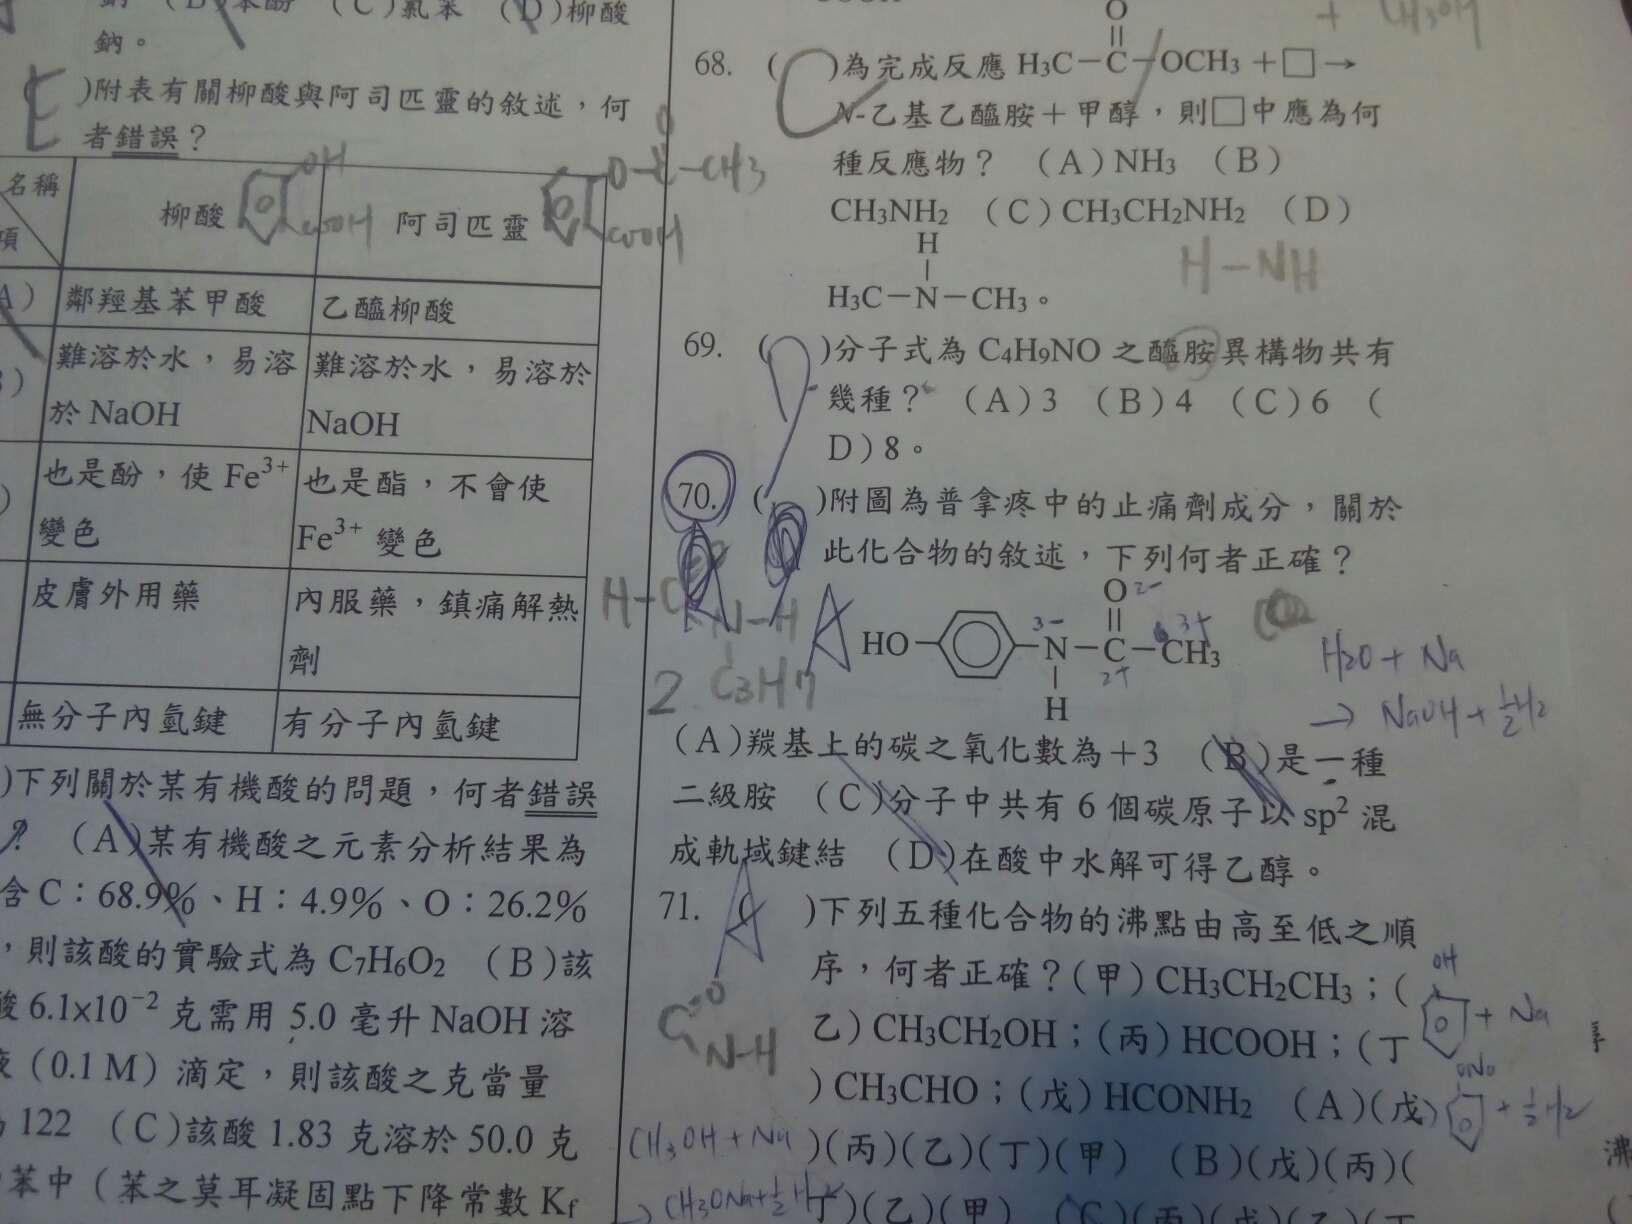 鈉 (B)苯酚 (C)氯苯 (D)柳酸
鈉。
E
)附表有關柳酸與阿司匹靈的敘述，何
者錯誤？
名稱
項
柳酸
OH
COOH
阿司匹靈
O-C-CH3
O
COOH
A)
鄰羥基苯甲酸
乙醯柳酸
難溶於水，易溶
於 NaOH
難溶於水，易溶於
NaOH
也是酚，使 Fe3+
變色
也是酯，不會使
Fe3+ 變色
皮膚外用藥
內服藥，鎮痛解熱
劑
無分子內氫鍵
有分子內氫鍵
)下列關於某有機酸的問題，何者錯誤
? (A)某有機酸之元素分析結果為
含 C：68.9%、H：4.9%、O：26.2%
，則該酸的實驗式為 C7H6O2 (B)該
酸 6.1x10−2 克需用 5.0 毫升 NaOH 溶
液（0.1 M）滴定，則該酸之克當量
122 (C)該酸 1.83 克溶於 50.0 克
苯中（苯之莫耳凝固點下降常數 Kf
+ CH3OH
O
68. (C)為完成反應 H3C－C－OCH3＋□→
N-乙基乙醯胺＋甲醇，則□中應為何
種反應物？ (A)NH3 (B)
CH3NH2 (C)CH3CH2NH2 (D)
H
H3C－N－CH3。
H-NH
69. ( )分子式為 C4H9NO 之醯胺異構物共有
幾種？ (A)3 (B)4 (C)6 (
D)8。
70. ( )附圖為普拿疼中的止痛劑成分，關於
此化合物的敘述，下列何者正確？
H-C
N-H
C3H7
2
A
O 2-
HO
3-
N－C－CH3
3+
2+
H
H2O + Na
→ NaOH + ½H2
(A)羰基上的碳之氧化數為＋3 (B)是一種
二級胺 (C)分子中共有 6 個碳原子以 sp2 混
成軌域鍵結 (D)在酸中水解可得乙醇。
71. (A )下列五種化合物的沸點由高至低之順
序，何者正確？(甲) CH3CH2CH3；(
乙) CH3CH2OH；(丙) HCOOH；(丁
) CH3CHO；(戊) HCONH2 (A)(戊
)(丙)(乙)(丁)(甲) (B)(戊)(丙)(
丁)(乙)(甲) (C)(丙)(戊)(乙)(丁
C=O
N-H
OH
+ Na
ONa
+ ½H2
CH3OH + Na
→ CH3ONa+½H2
沸